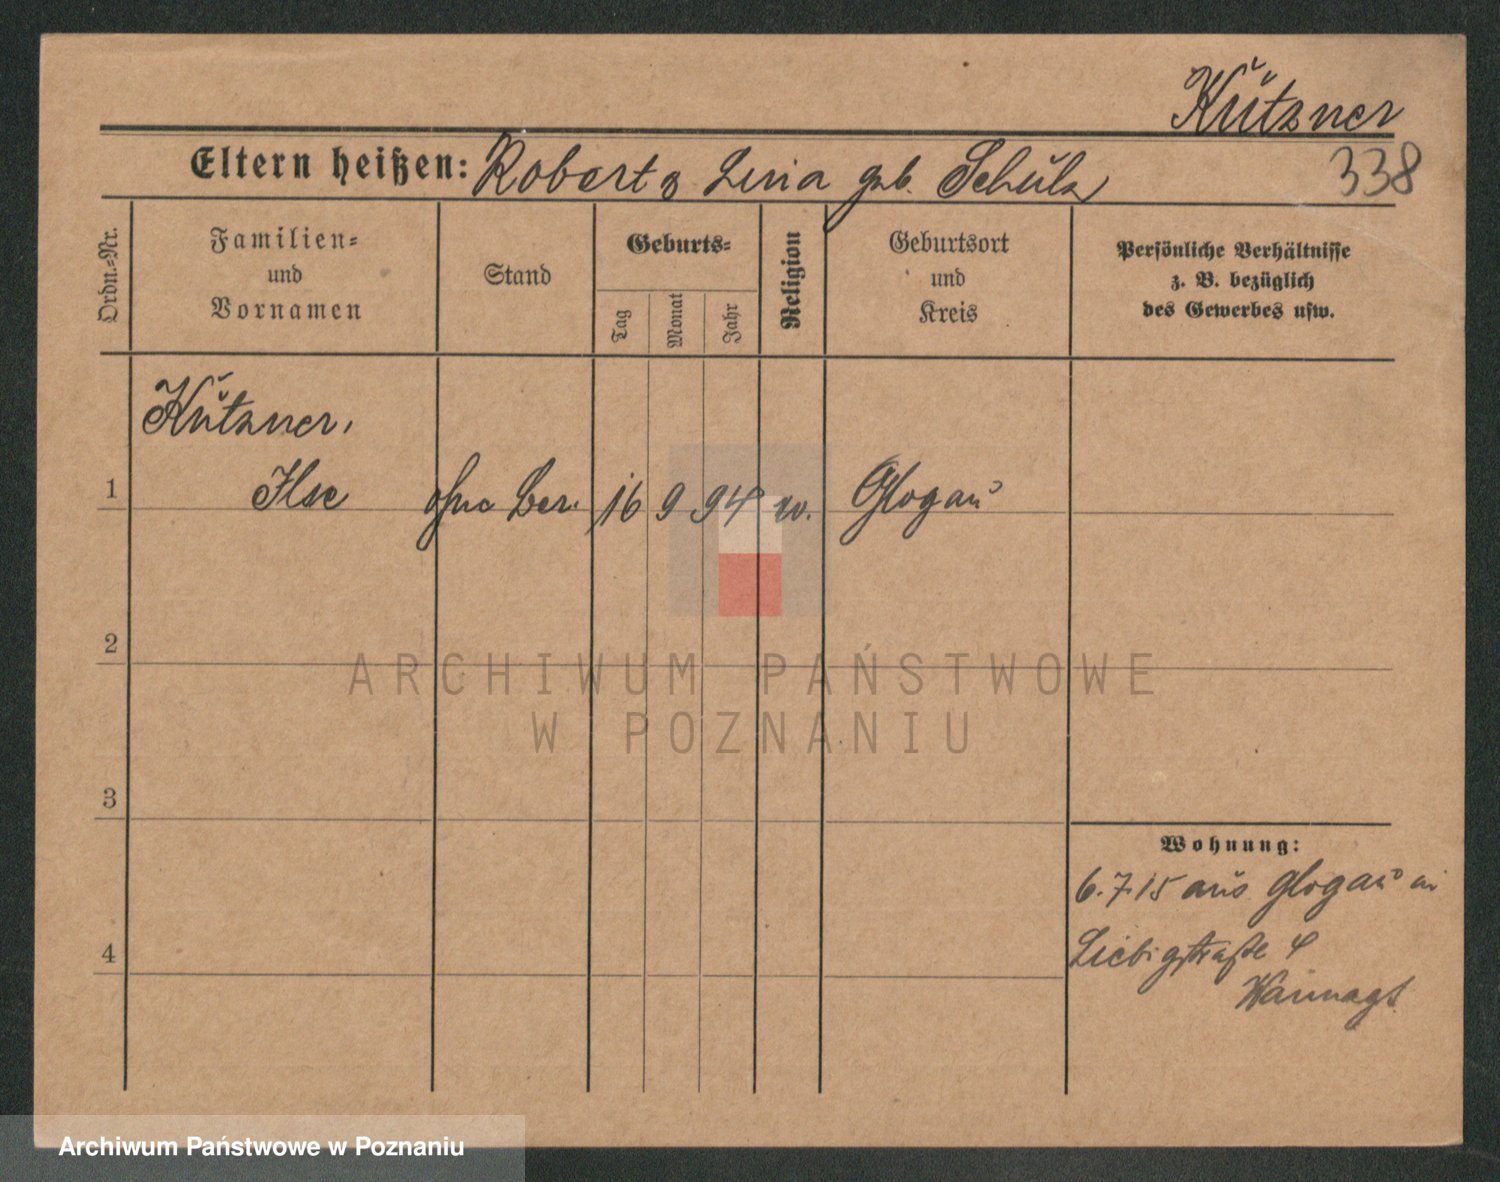 Kützner
Eltern heißen: Robert & Lina geb. Schulz 338
Ordn.-Nr.
Familien-
und
Vornamen
Stand
Geburts-
Tag
Monat
Jahr
Religion
Geburtsort
und
Kreis
Persönliche Verhältnisse
z. B. bezüglich
des Gewerbes usw.
Kützner,
1 Ilse ohne Ber. 16 9 94 Glogau
2
ARCHIWUM PAŃSTWOWE
W POZNANIU
3
Wohnung:
6.7.15 aus Glogau in
4
Liebigstraße 4
Archiwum Państwowe w Poznaniu